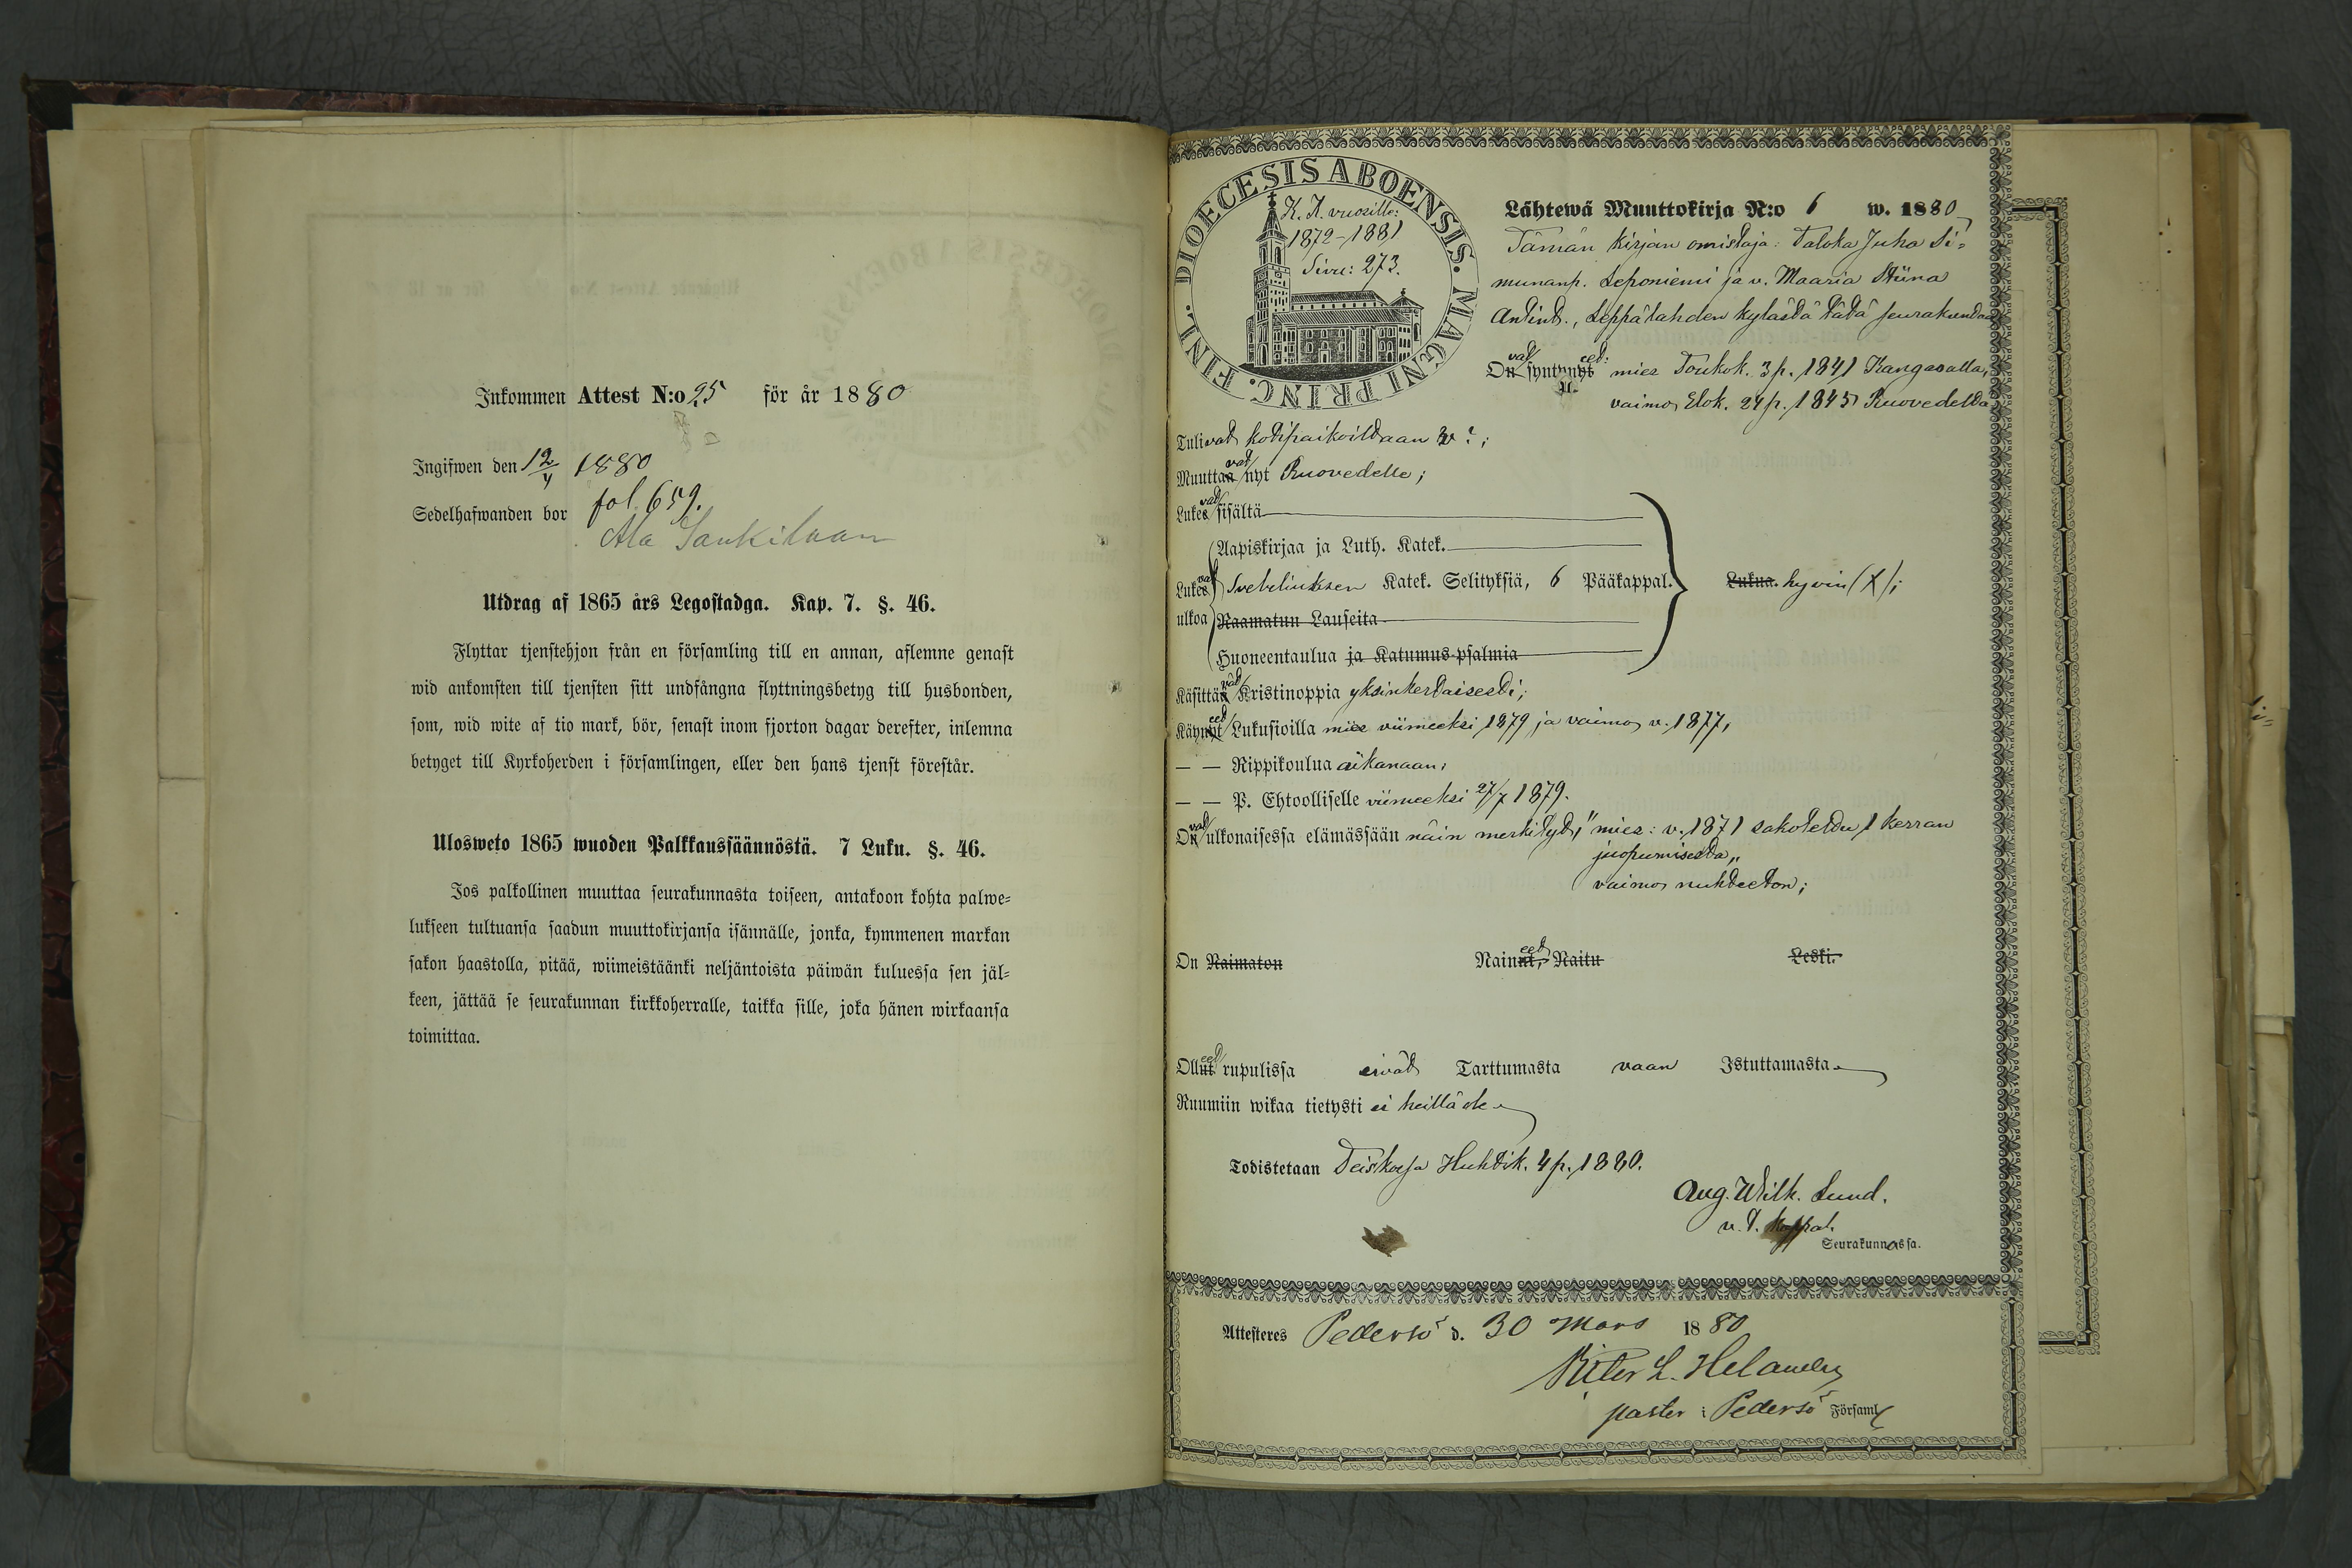 Inkommen Attest N:o 25 för år 1880
Ingifwen den 12/4 1880
Sedelhafwanden bor fol. 659.
Ala
Utdrag af 1865 års Legostadga. Kap. 7. §. 46.
Flyttar tjenstehjon från en församling till en annan, aflemne genast
wid ankomsten till tjensten sitt undfångna flyttningsbetyg till husbonden,
som, wid wite af tio mark, bör, senast inom fjorton dagar derefter, inlemna
betyget till Kyrkoherden i församlingen, eller den hans tjenst förestår.
Ulosweto 1865 wuoden Palkkaussäännöstä. 7 Luku. §. 46.
Jos palkollinen muuttaa seurakunnasta toiseen, antakoon kohta palwe=
lukseen tultuansa saadun muuttokirjansa isännälle, jonka, kymmenen markan
sakon haastolla, pitää, wiimeistäänki neljäntoista päiwän kuluessa sen jäl=
keen, jättää se seurakunnan kirkkoherralle, taikka sille, joka hänen wirkaansa
toimittaa.
DIOECESIS ABOENSIS. MAGNI PRINC. FINL.
K. K. vuosille:
1872-1881
Sivu: 273.
Lähtewä Muuttokirja N:o 6 w. 1880
Tämän kirjan omistaja: Taloka Juha Si=
munanp. Leponiemi ja v. Maaria Stiina
Antint., Leppälahden kylästä tätä seurakuntaa
On vat syntynyt eet: mies Toukok. 3 p. 1841 Kangasalla,
vaimo Elok. 24 p. 1845 Ruovedellä
Tulivat kotipaikoiltaan w. ?;
Muuttaa vat nyt Ruovedelle;
Lukee vat sisältä
Aapiskirjaa ja Luth. Katek.
Lukee vat Svebeliuksen Katek. Selityksiä, 6 Pääkappal. Lukua. hyvin (X);
ulkoa Raamatun Lauseita
Huoneentaulua ja Katumus-psalmia
Käsittää vät Kristinoppia yksinkertaisesti;
Käynyt eet Lukusioilla mies viimeeksi 1879 ja vaimo v. 1877,
— — Rippikoulua aikanaan;
— — P. Ehtoolliselle viimeeksi 27/7 1879.
On vat ulkonaisessa elämässään näin merkityt, "mies: v. 1871 sakotettu 1 kerran
juopumisesta„
vaimo nuhteeton;
On Naimaton Nainut, eet Naitu Leski.
Ollut eet rupulissa eivät Tarttumasta vaan Istuttamasta
Ruumiin wikaa tietysti ei heillä ole
Todistetaan Teiskossa Huhtik. 4 p. 1880.
Aug. Wilh. Lund.
v. t. kappal.
Seurakunnassa.
Attesteres Pedersö d. 30 Mars 1880
L. Helander
pastor i Pedersö Församl